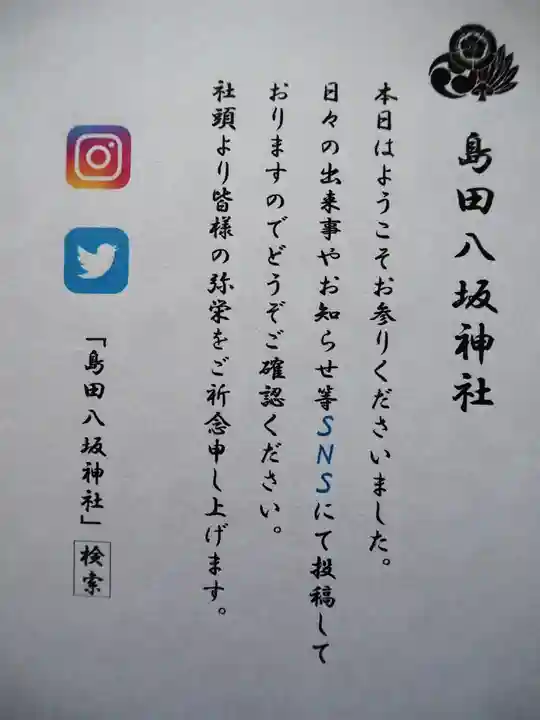 島田八坂神社
本日はようこそお参りくださいました。
日々の出来事やお知らせ等SNSにて投稿して
おりますのでどうぞご確認ください。
社頭より皆様の弥栄をご祈念申し上げます。
「島田八坂神社」検索